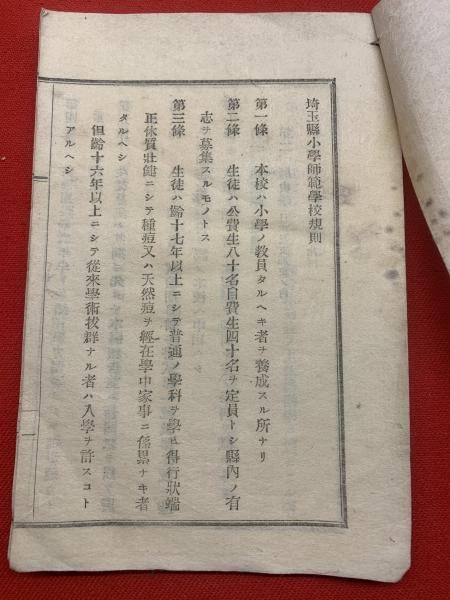 埼玉縣小學師範學校規則
第一條　本校ハ小學ノ敎員タルヘキ者ヲ養成スル所ナリ
第二條　生徒ハ公費生八十名自費生四十名ヲ定員トシ縣內ノ有
志ヲ募集スルモノトス
第三條　生徒ハ齡十七年以上ニシテ普通ノ學科ヲ學ヒ得行狀端
正体質壯健ニシテ種痘又ハ天然痘ヲ經在學中家事ニ係累ナキ者
タルヘシ
但齡十六年以上ニシテ從來學術拔群ナル者ハ入學ヲ許スコト
アルヘシ
一